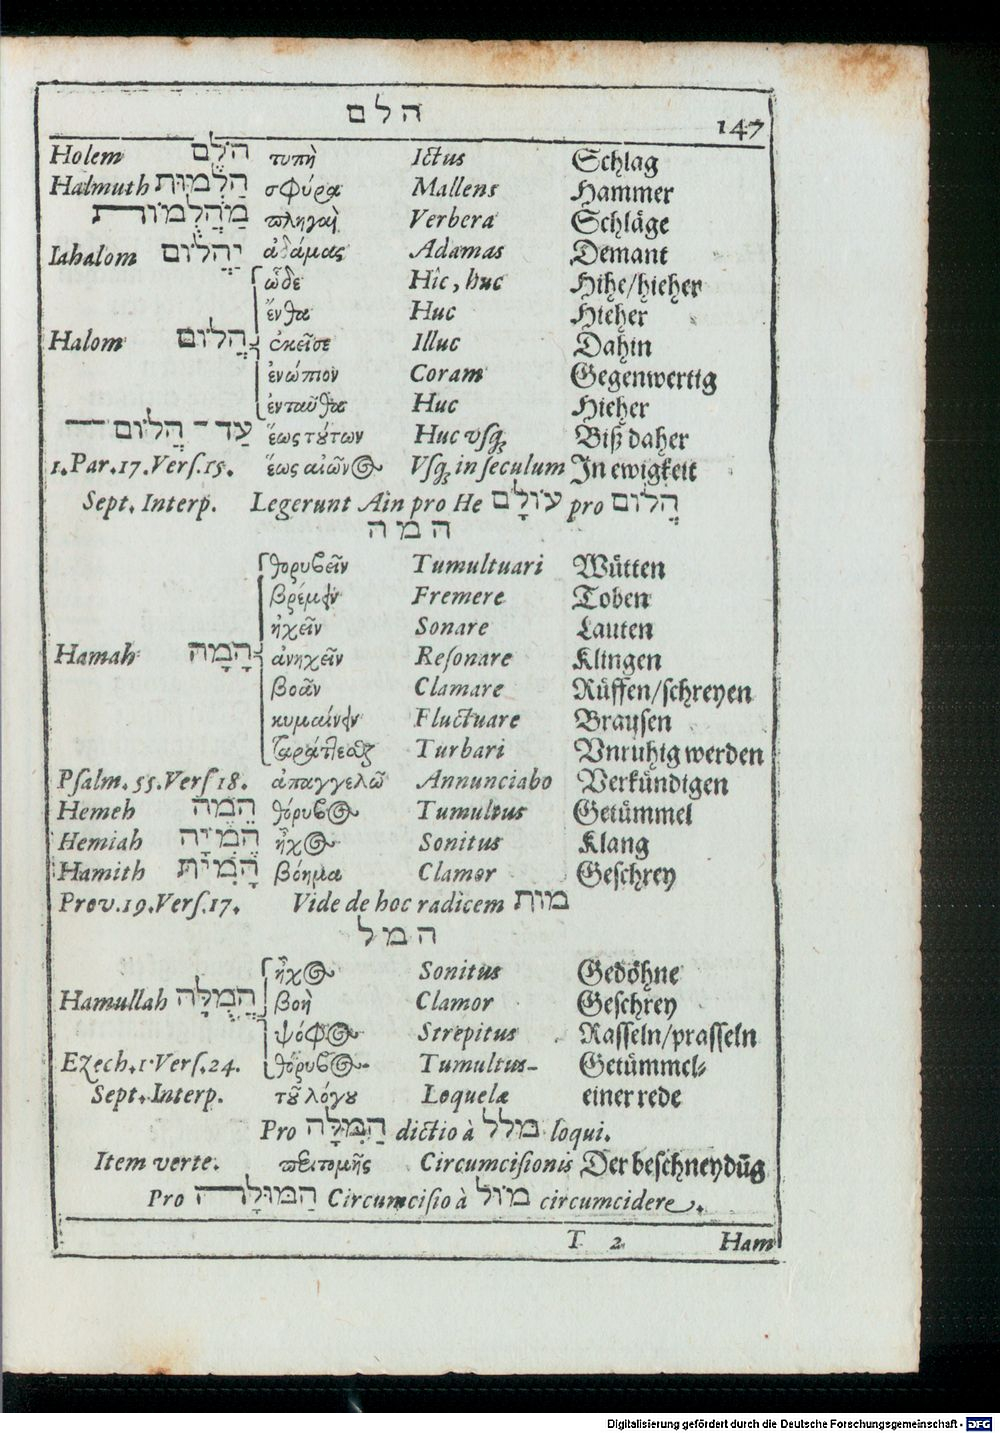 הלם
147
Holem הֹלֶם τυπὴ Ictus Schlag
Halmuth הַלְמוּת σφύρα Mallens Hammer
מַהֲלֻמוֹת πληγαὶ Verbera Schläge
Iahalom יַהֲלוֹם ἀδάμας Adamas Demant
ὧδε Hîc, huc Hihe/hieher
ἔνθα Huc Hieher
Halom הֲלוֹם ἐκεῖσε Illuc Dahin
ἐνώπιον Coram Gegenwertig
ἐνταῦθα Huc Hieher
עַד־הֲלוֹם ἕως τȣ́των Huc vsq; Biß daher
1. Par. 17. Verſ. 15. ἕως αἰῶνος Vsq; in ſeculum In ewigkeit
Sept. Interp. Legerunt Ain pro He עוֹלָם pro הֲלוֹם
המה
θορυβεῖν Tumultuari Wütten
βρέμειν Fremere Toben
ἠχεῖν Sonare Lauten
Hamah הָמָה ἀνηχεῖν Reſonare Klingen
βοᾶν Clamare Rüffen/ſchreyen
κυμαίνειν Fluctuare Brauſen
ταράττεσθαι Turbari Vnruhig werden
Pſalm. 55. Verſ 18. ἀπαγγελῶ Annunciabo Verkündigen
Hemeh הֶמֶה θόρυβος Tumultus Getümmel
Hemiah הֶמְיָה ἦχος Sonitus Klang
Hamith הָמִית βόημα Clamor Geſchrey
Prov. 19. Verſ. 17. Vide de hoc radicem מות
המל
ἦχος Sonitus Gedöhne
Hamullah הֲמֻלָּה βοὴ Clamor Geſchrey
ψόφος Strepitus Raſſeln/praſſeln
Ezech. 1. Verſ. 24. θόρυβος Tumultus- Getümmel-
Sept. Interp. τȣ͂ λόγȣ Loquelæ einer rede
Pro הַמִּלָּה dictio à מלל loqui.
Item verte. περιτομῆς Circumciſionis Der beſchneydūg
Pro הַמּוּלָה Circumciſio à מול circumcidere.
T 2 Ham
Digitalisierung gefördert durch die Deutsche Forschungsgemeinschaft - DFG